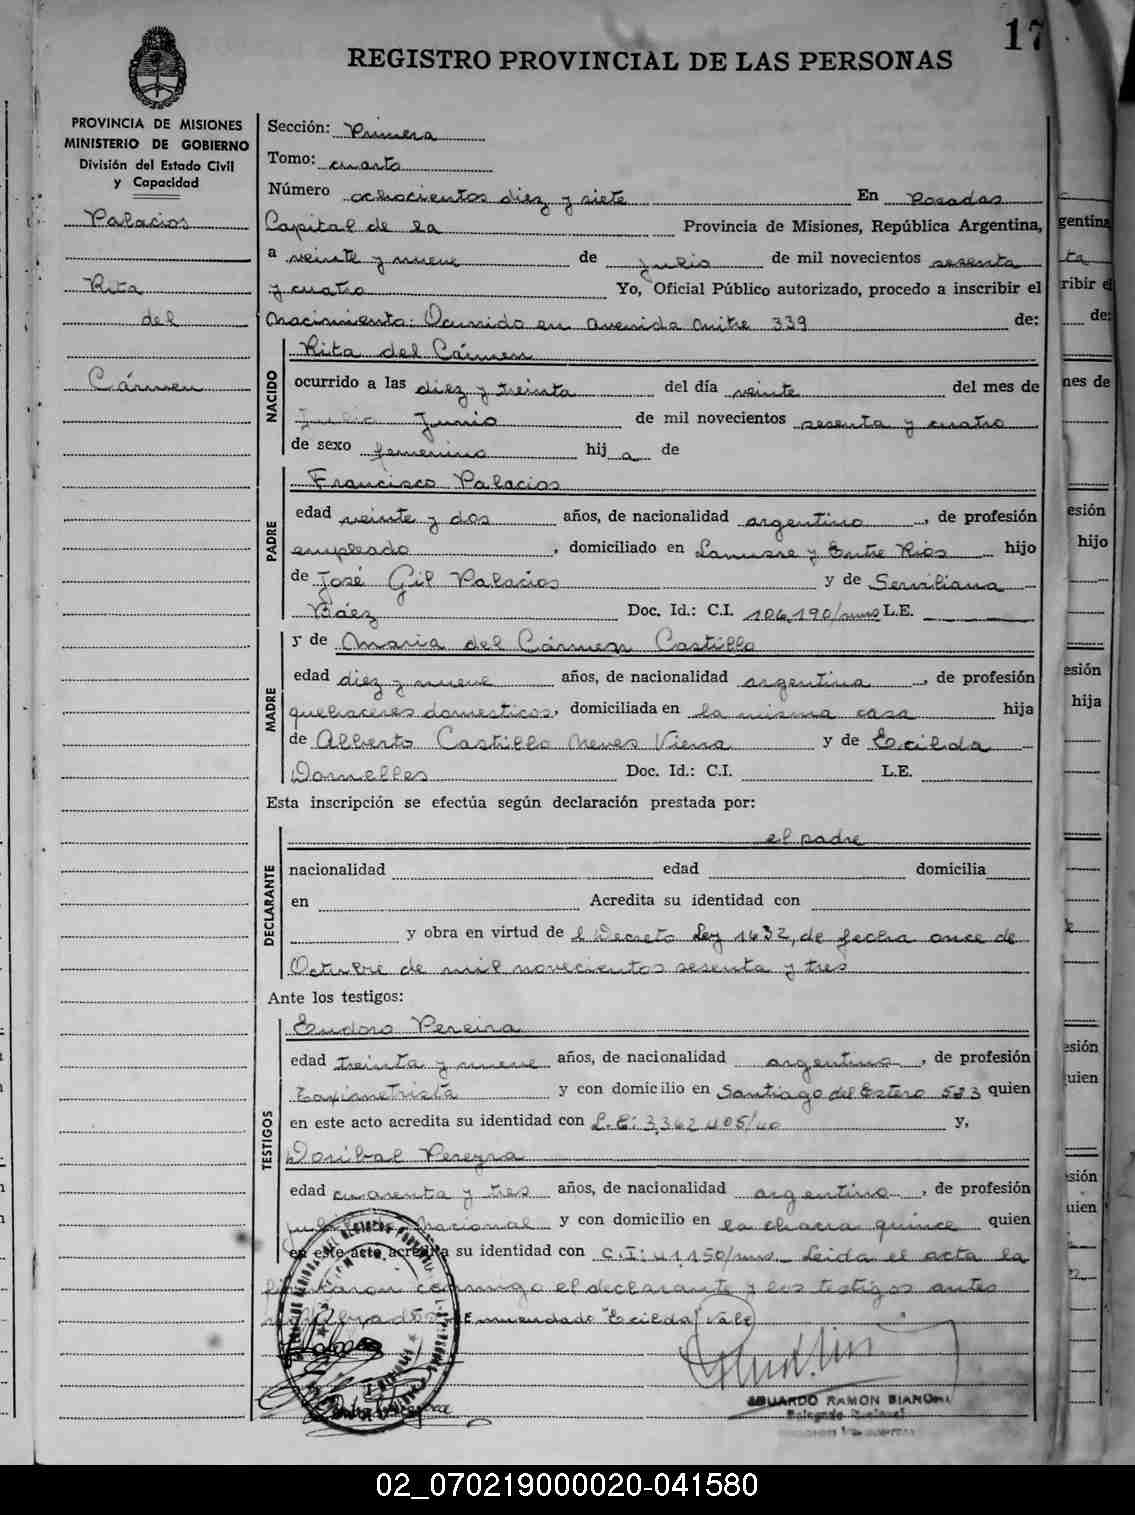 17
REGISTRO PROVINCIAL DE LAS PERSONAS
PROVINCIA DE MISIONES
MINISTERIO DE GOBIERNO
División del Estado Civil
y Capacidad
Palacios
Rita
del
Cármen
Sección: Primera
Tomo: cuarto
Número ochocientos diez y siete En Posadas
Capital de la Provincia de Misiones, República Argentina,
a veinte y nueve de julio de mil novecientos sesenta
y cuatro Yo, Oficial Público autorizado, procedo a inscribir el
Nacimiento: Ocurrido en Avenida Mitre 339 de:
NACIDO
Rita del Cármen
ocurrido a las diez y treinta del día veinte del mes de
Junio de mil novecientos sesenta y cuatro
de sexo femenino hija de
PADRE
Francisco Palacios
edad veinte y dos años, de nacionalidad argentino, de profesión
empleado, domiciliado en Lanusse y Entre Rios hijo
de José Gil Palacios y de Serviliana
Báez Doc. Id.: C.I. 106,190/mns L.E.
MADRE
y de Maria del Cármen Castillo
edad diez y nueve años, de nacionalidad argentina, de profesión
quehaceres domesticos, domiciliada en la misma casa hija
de Alberto Castillo Neves Viera y de Ecilda
Dornelles Doc. Id.: C.I. L.E.
Esta inscripción se efectúa según declaración prestada por:
DECLARANTE
el padre
nacionalidad edad domicilia
en Acredita su identidad con
y obra en virtud del Decreto Ley 1632, de fecha once de
Octubre de mil novecientos sesenta y tres
Ante los testigos:
TESTIGOS
Eudoro Pereira
edad treinta y nueve años, de nacionalidad argentino, de profesión
Taximetrista y con domicilio en Santiago del Estero 583 quien
en este acto acredita su identidad con L.E: 3,362,405/40 y,
Doribal Pereyra
edad cuarenta y tres años, de nacionalidad argentino, de profesión
Nacional y con domicilio en la chacra quince quien
en este acto acredita su identidad con C.I: 41,150/mns. Leida el acta la
firmaron conmigo el declarante y los testigos antes
nombrados. Enmendado "Ecilda" Vale
EDUARDO RAMON BIANCHI
Delegado Regional
gentina
ta
ribir el
de:
nes de
esión
hijo
esión
hija
esión
quien
sión
uien
02_070219000020-041580